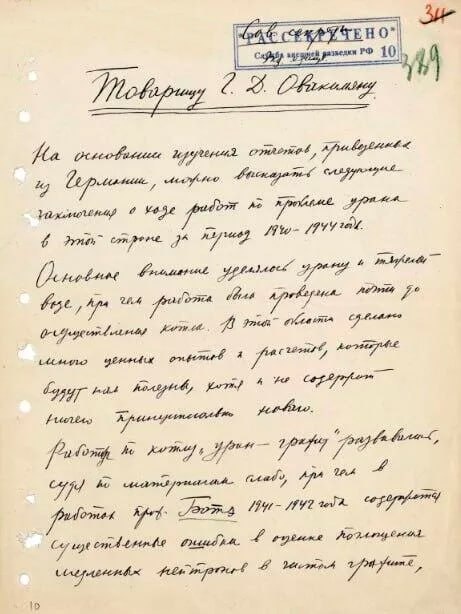 34
Сов. секретно
"РАССЕКРЕЧЕНО"
Служба внешней разведки РФ 10
389
Товарищу Г. Д. Овакимяну.
На основании изучения отчетов, привезенных
из Германии, можно высказать следующие
заключения о ходе работ по проблеме урана
в этой стране за период 1940-1944 годы.
Основное внимание уделялось урану и тяжелой
воде, при чем работа была проведена почти до
осуществления котла. В этой области сделано
много ценных опытов и расчетов, которые
будут нам полезны, хотя и не содержат
ничего принципиально нового.
Работы по котлу „уран - графит" развивались,
судя по материалам слабо, при чем в
работах проф. Ботэ 1941-1942 года содержатся
существенные ошибка в оценке поглощения
медленных нейтронов в чистом графите,
10